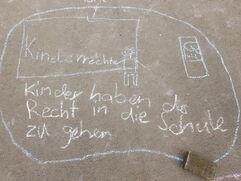 Kinderrechte
Kinder haben das
Recht in die Schule
zu gehen